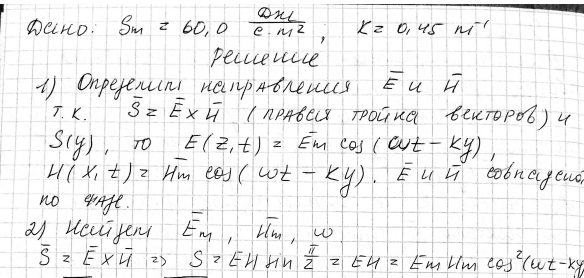 Дано: Sm = 60,0 Дж/с·м², K = 0,45 m⁻¹
Решение
1) Определим направления Ē и H̄
т.к. S̄ = Ē × H̄ (правая тройка векторов) и
S(y), то E(z,t) = Ēm cos(ωt - ky),
H(x,t) = H̄m cos(ωt - ky). Ē и H̄ совпадают
по фазе.
2) Найдем Ēm, H̄m, ω
S̄ = Ē × H̄ => S = EH sin π/2 = EH = Em Hm cos²(ωt - ky